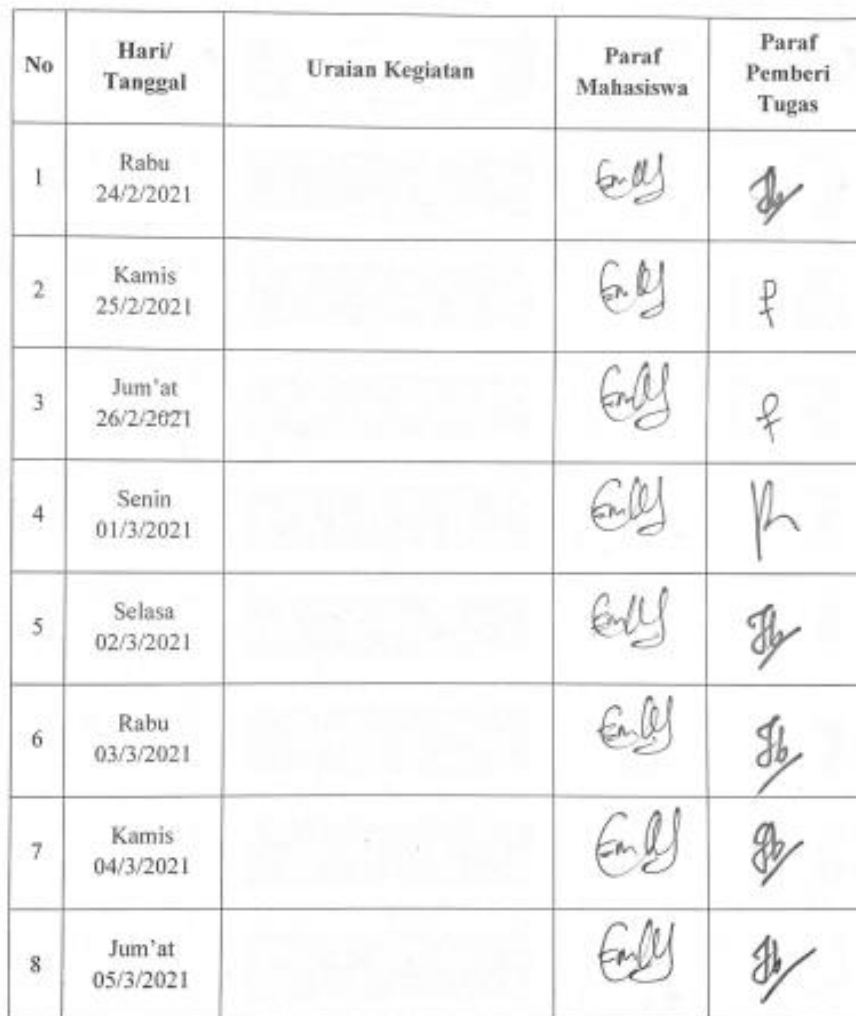 No
Hari/
Tanggal
Uraian Kegiatan
Paraf
Mahasiswa
Paraf
Pemberi
Tugas
1
Rabu
24/2/2021
2
Kamis
25/2/2021
3
Jum'at
26/2/2021
4
Senin
01/3/2021
5
Selasa
02/3/2021
6
Rabu
03/3/2021
7
Kamis
04/3/2021
8
Jum'at
05/3/2021